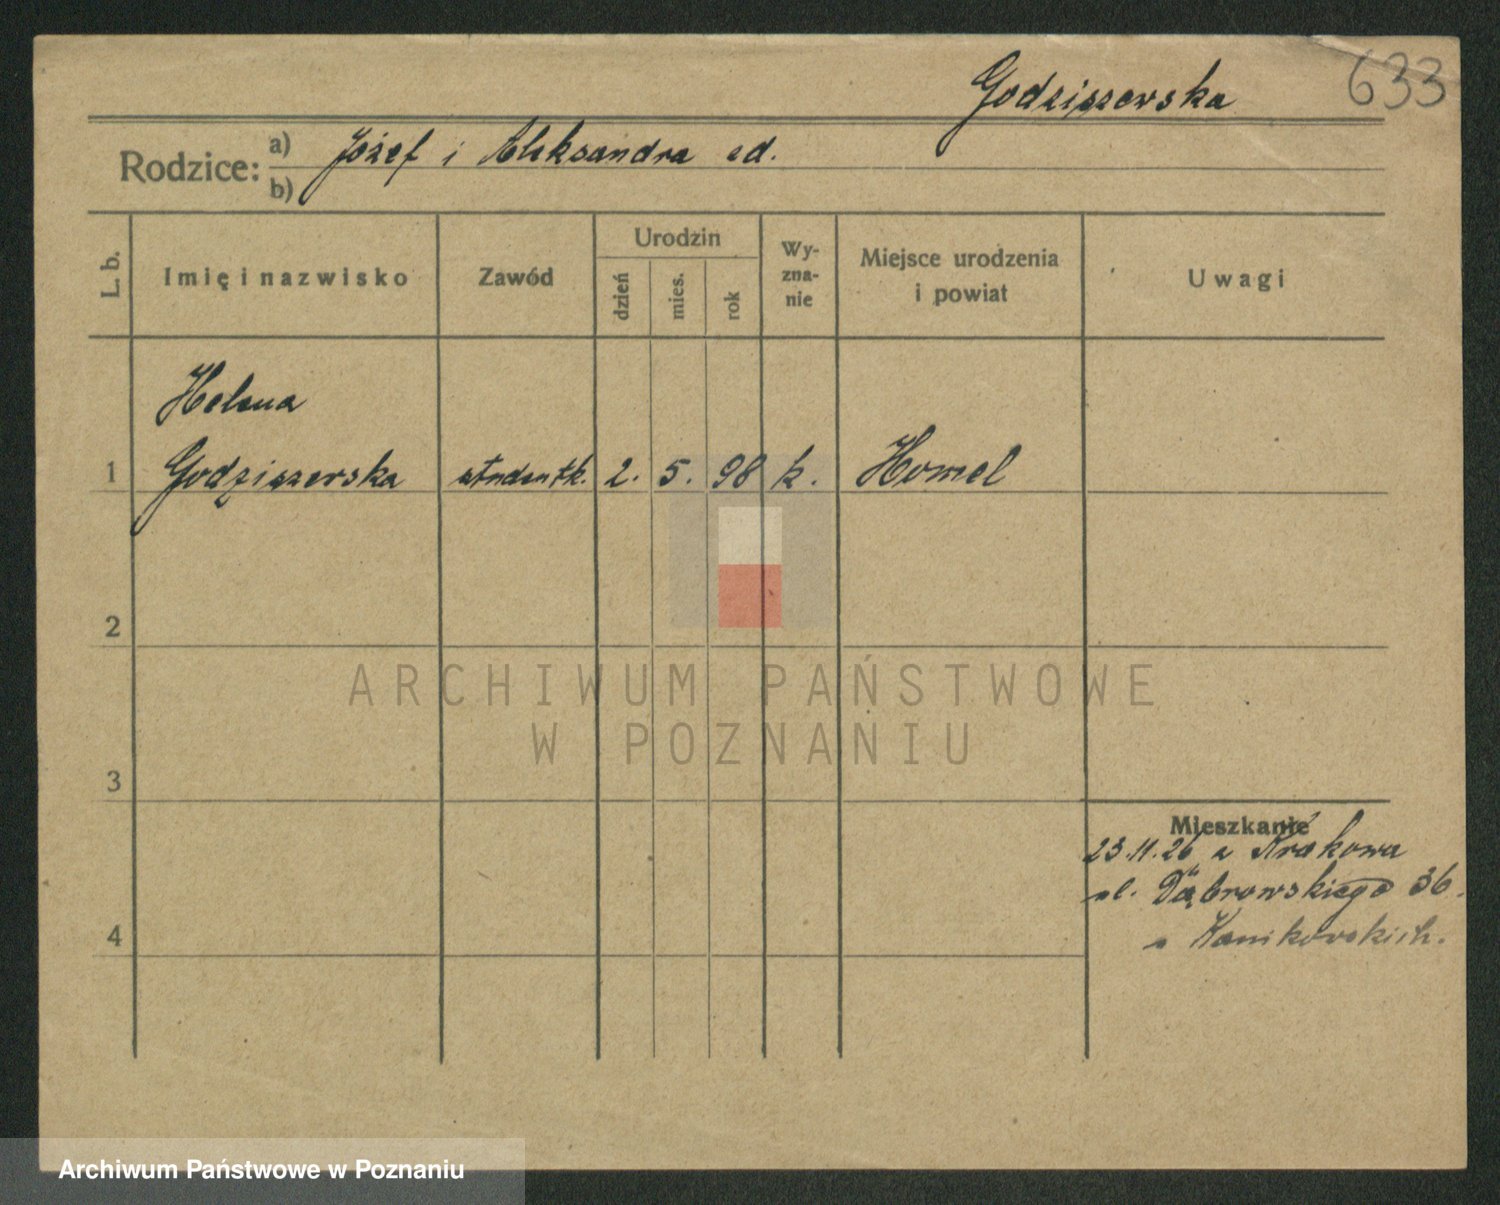 Godziszewska
633
Rodzice: a) Józef i Aleksandra zd.
b)
L. b.
Imię i nazwisko
Zawód
Urodzin
dzień
mies.
rok
Wy-
zna-
nie
Miejsce urodzenia
i powiat
Uwagi
Helena
1 Godziszewska studentk. 2. 5. 98 k. Homel
2
3
4
Mieszkanie
23.11.26 z Krakowa
ul. Dąbrowskiego 36.
u Kanikowskich.
ARCHIWUM PAŃSTWOWE
W POZNANIU
Archiwum Państwowe w Poznaniu